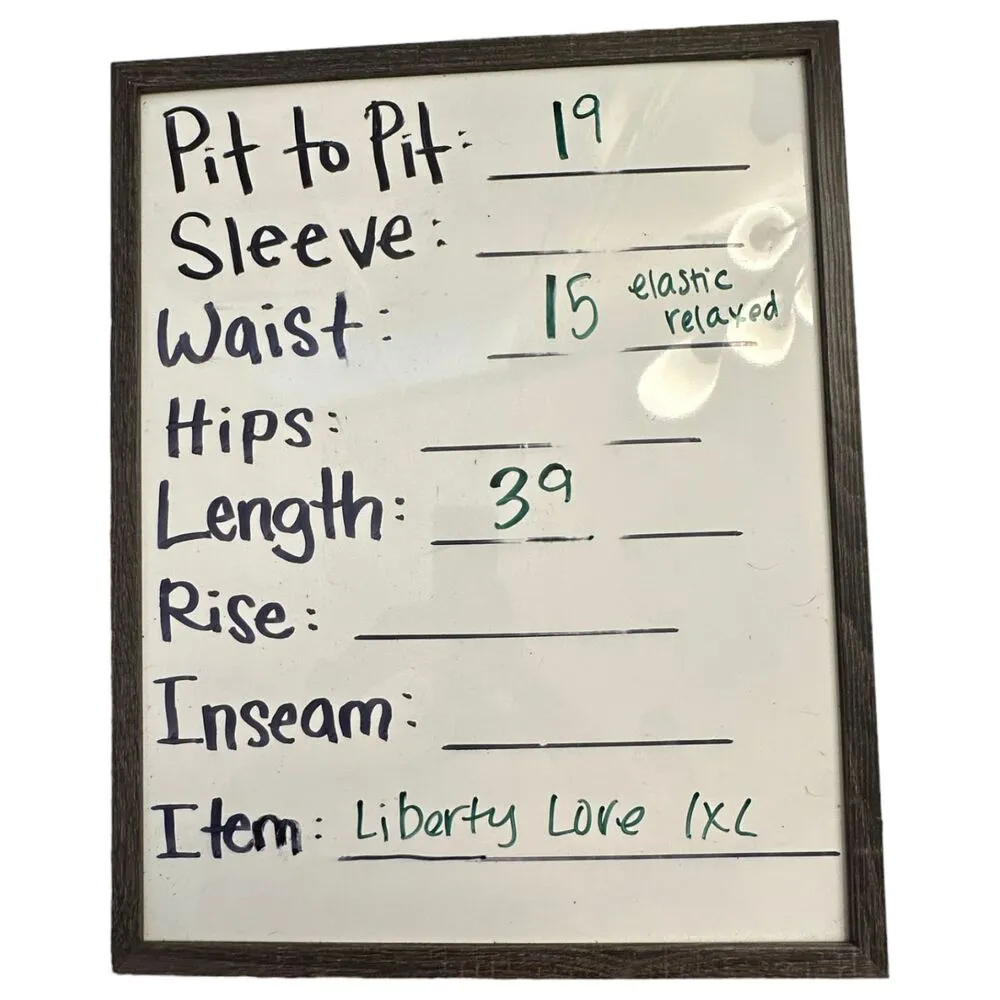 Pit to Pit: 19
Sleeve:
Waist: 15 elastic relaxed
Hips:
Length: 39
Rise:
Inseam:
Item: Liberty Love 1XL